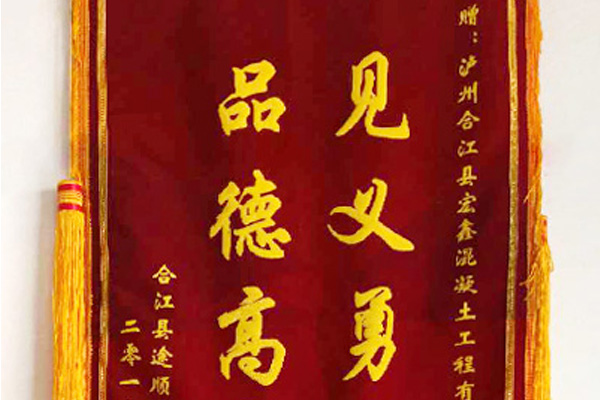 赠：泸州合江县宏鑫混凝土工程有
见义勇
品德高
合江县途顺
二零一